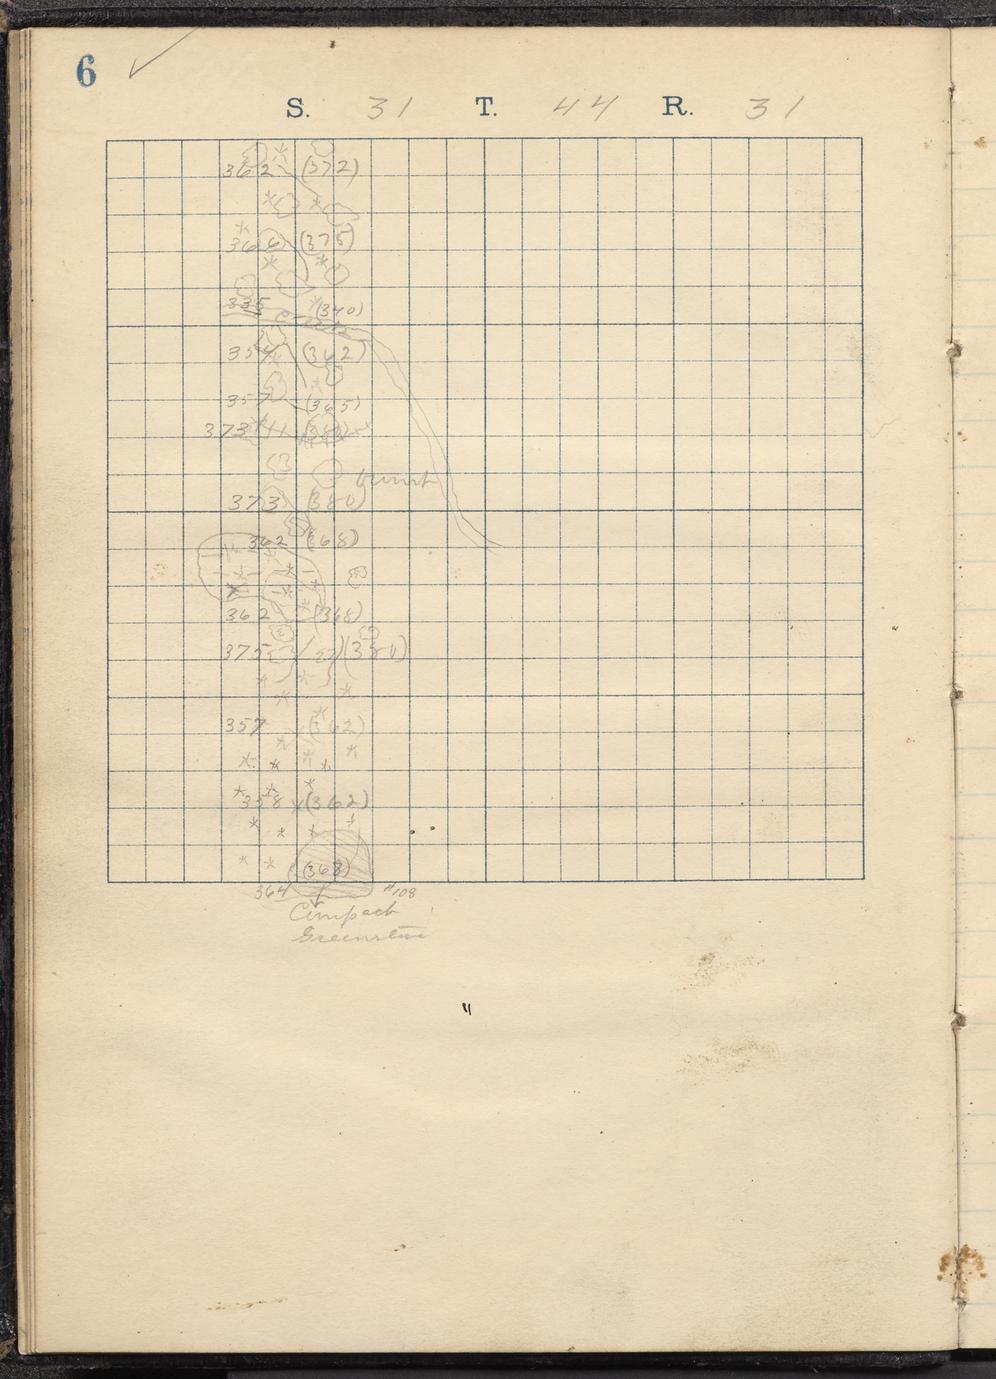 6
S. 31 T. 44 R. 31
362 (372)
366 (375)
335 (340)
354 (342)
357 (365)
373
burnt
373 (380)
362 (368)
362 (368)
375 (380)
357 (362)
358 (362)
(368)
364 #108
Greenstone